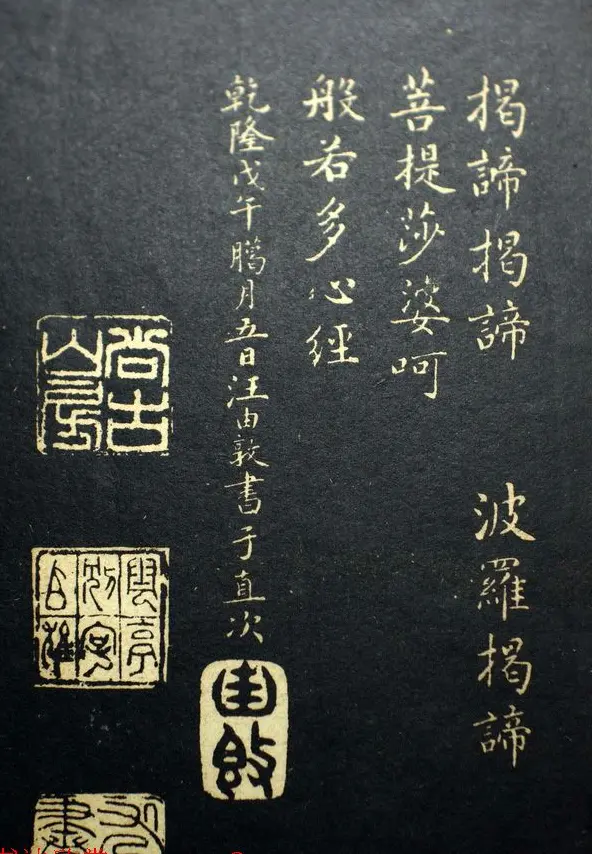 揭諦揭諦　波羅揭諦
菩提莎婆呵
般若多心經
乾隆戊午臈月五日汪由敦書于直次
由敦
尚古山房